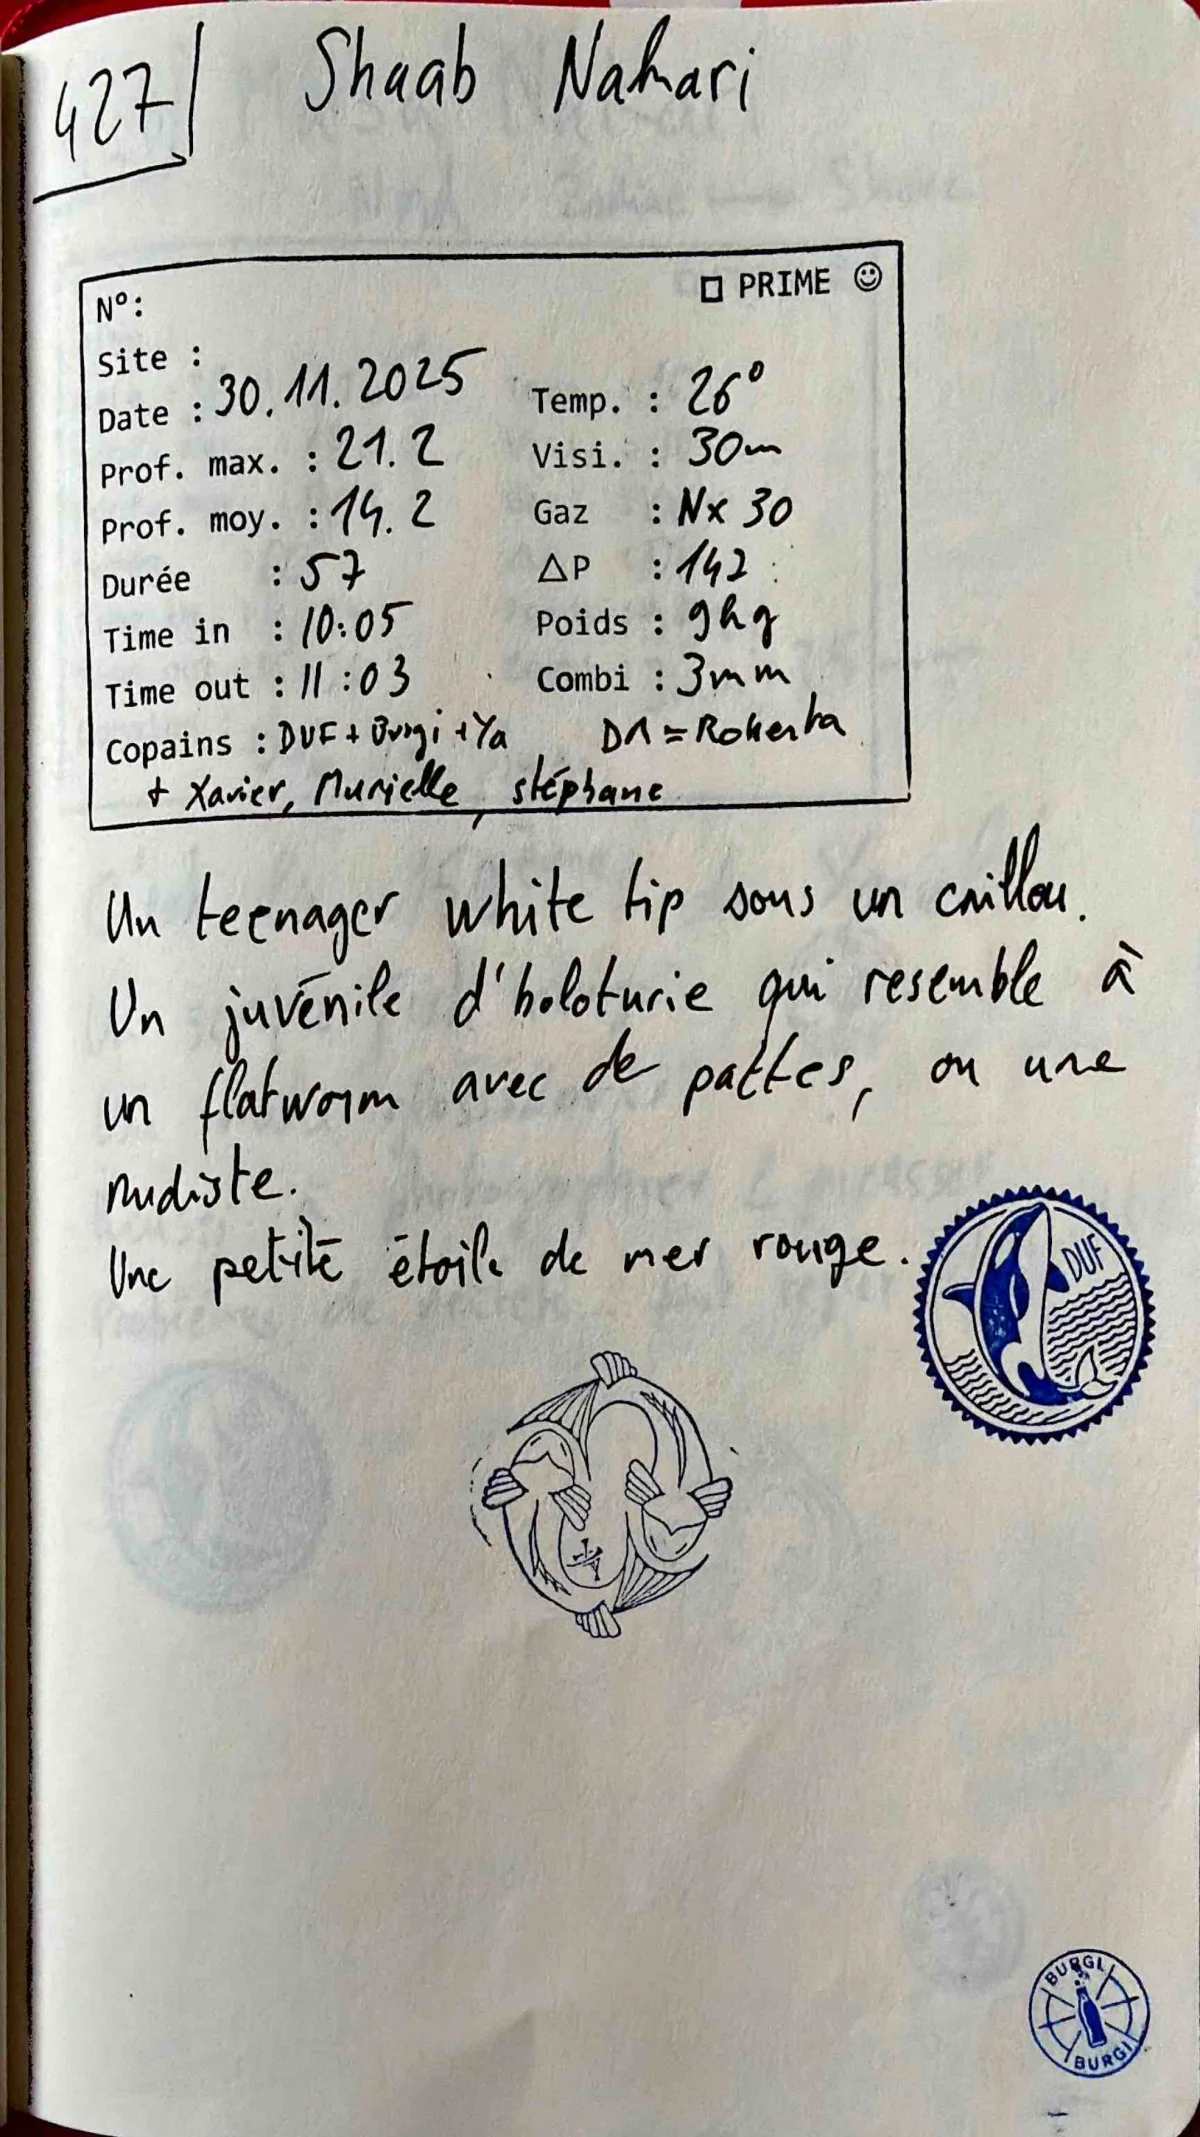 427 Shaab Nahari
N°: □ PRIME ☺
Site :
Date : 30.11.2025 Temp. : 26°
Prof. max. : 21.2 Visi. : 30m
Prof. moy. : 14.2 Gaz : Nx 30
Durée : 57 ΔP : 142
Time in : 10:05 Poids : 9kg
Time out : 11:03 Combi : 3mm
Copains : DUF + Burgi + Ya DM = Roberta
+ Xavier, Murielle, stéphane
Un teenager white tip sous un caillou.
Un juvénile d'holoturie qui resemble à
un flatworm avec de pattes, ou une
nudiste.
Une petite étoile de mer rouge.
DUF
BURGI
BURGI